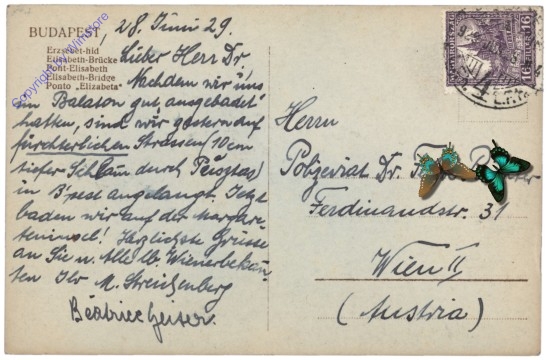 BUDAPEST, 28. Juni 29.
Erzsébet-híd
Elisabeth-Brücke
Pont-Elisabeth
Elisabeth-Bridge
Ponto „Elizabeta"
Lieber Herr Dr
Nachdem wir uns
im Balaton gut „ausgebadet"
hatten, sind wir gestern auf
fürchterlichen Strassen (10 cm
tiefer Schlamm durch
in B'pest angelangt. Jetzt
baden wir auf der Margare-
teninsel! Herzlichste Grüsse
an Sie u. alle lb. Wienerbekan-
ten Ihr M.
Béatrice Geiser.
Herrn
Polizeirat Dr.
Ferdinandstr. 31
Wien II
(Austria)
16 16
Copyright by